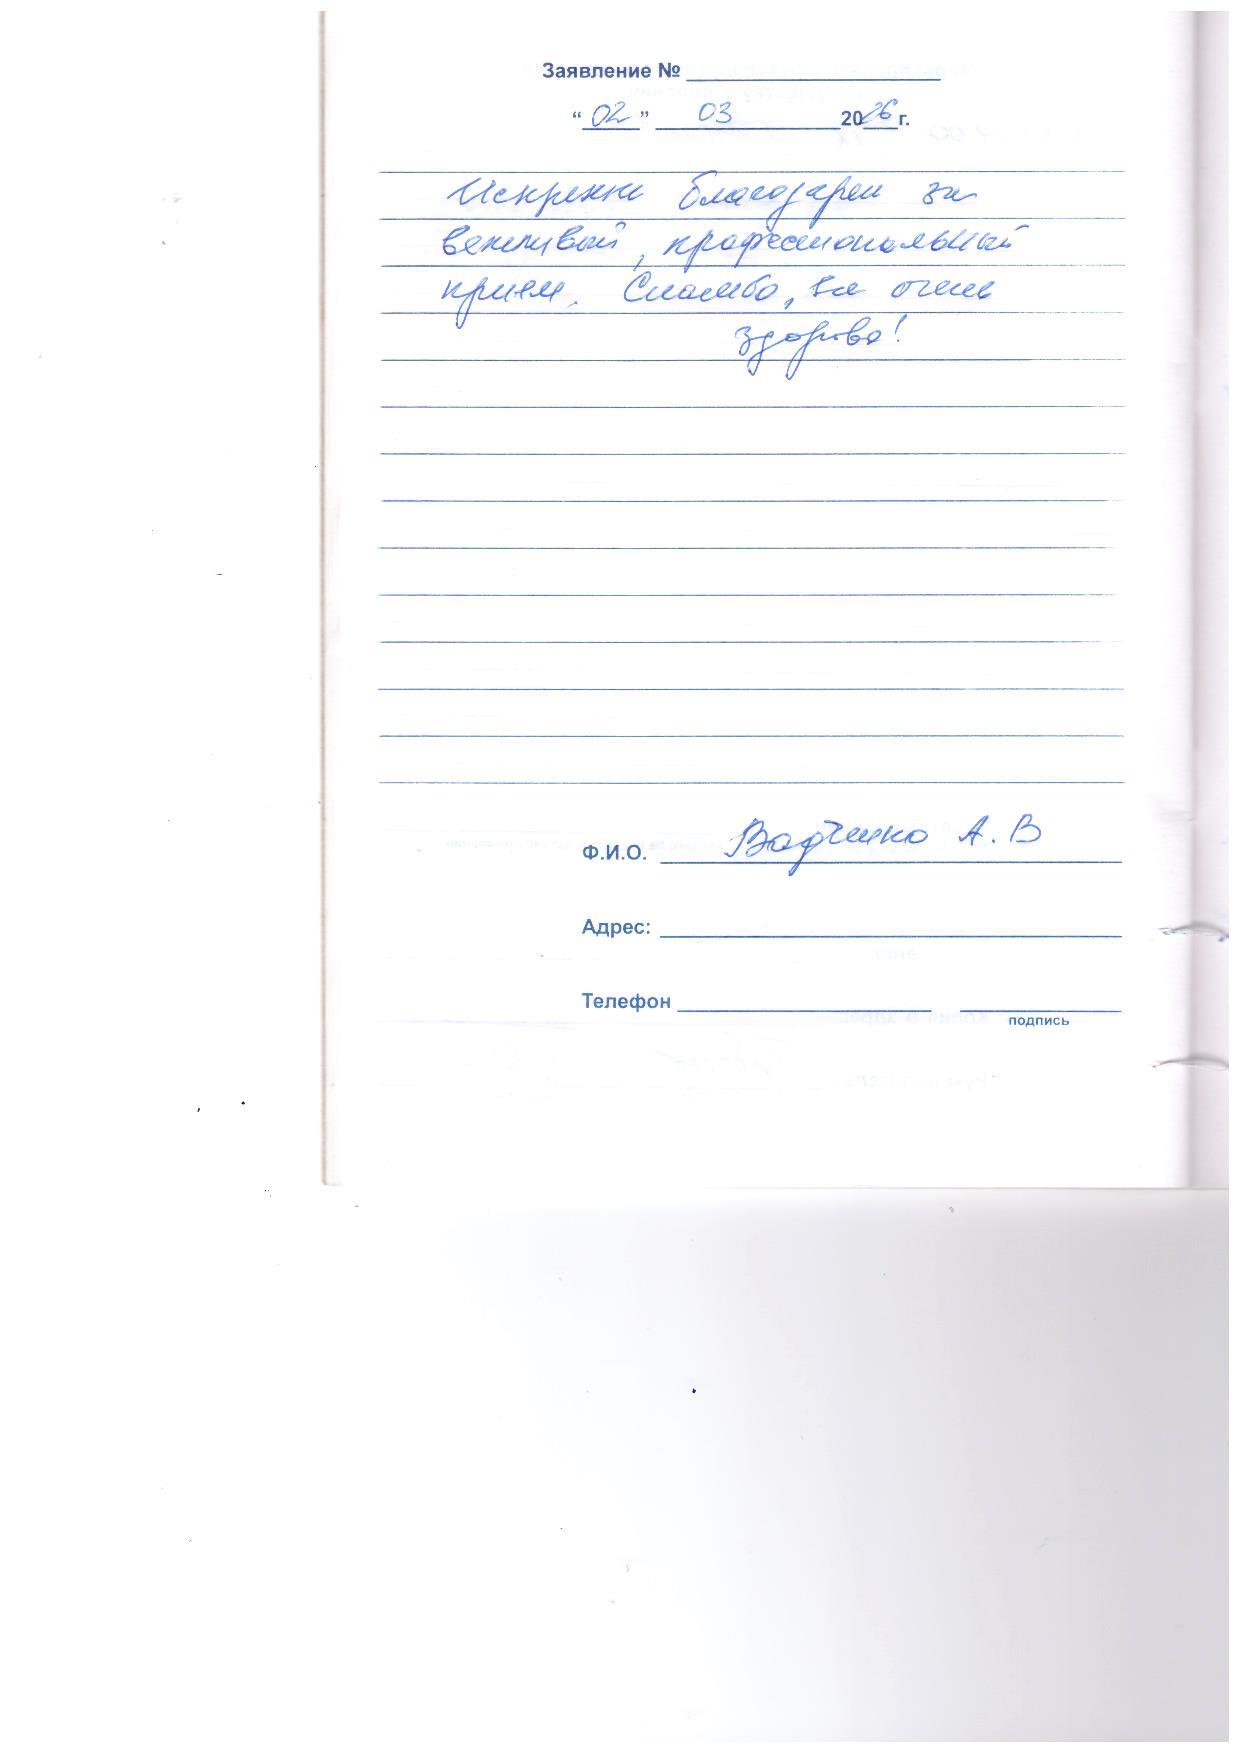 Заявление №
“02” 03 2026 г.
Искренне благодарен за
вежливый, профессиональный
прием. Спасибо, все очень
здорово!
Ф.И.О. А.В
Адрес:
Телефон
подпись